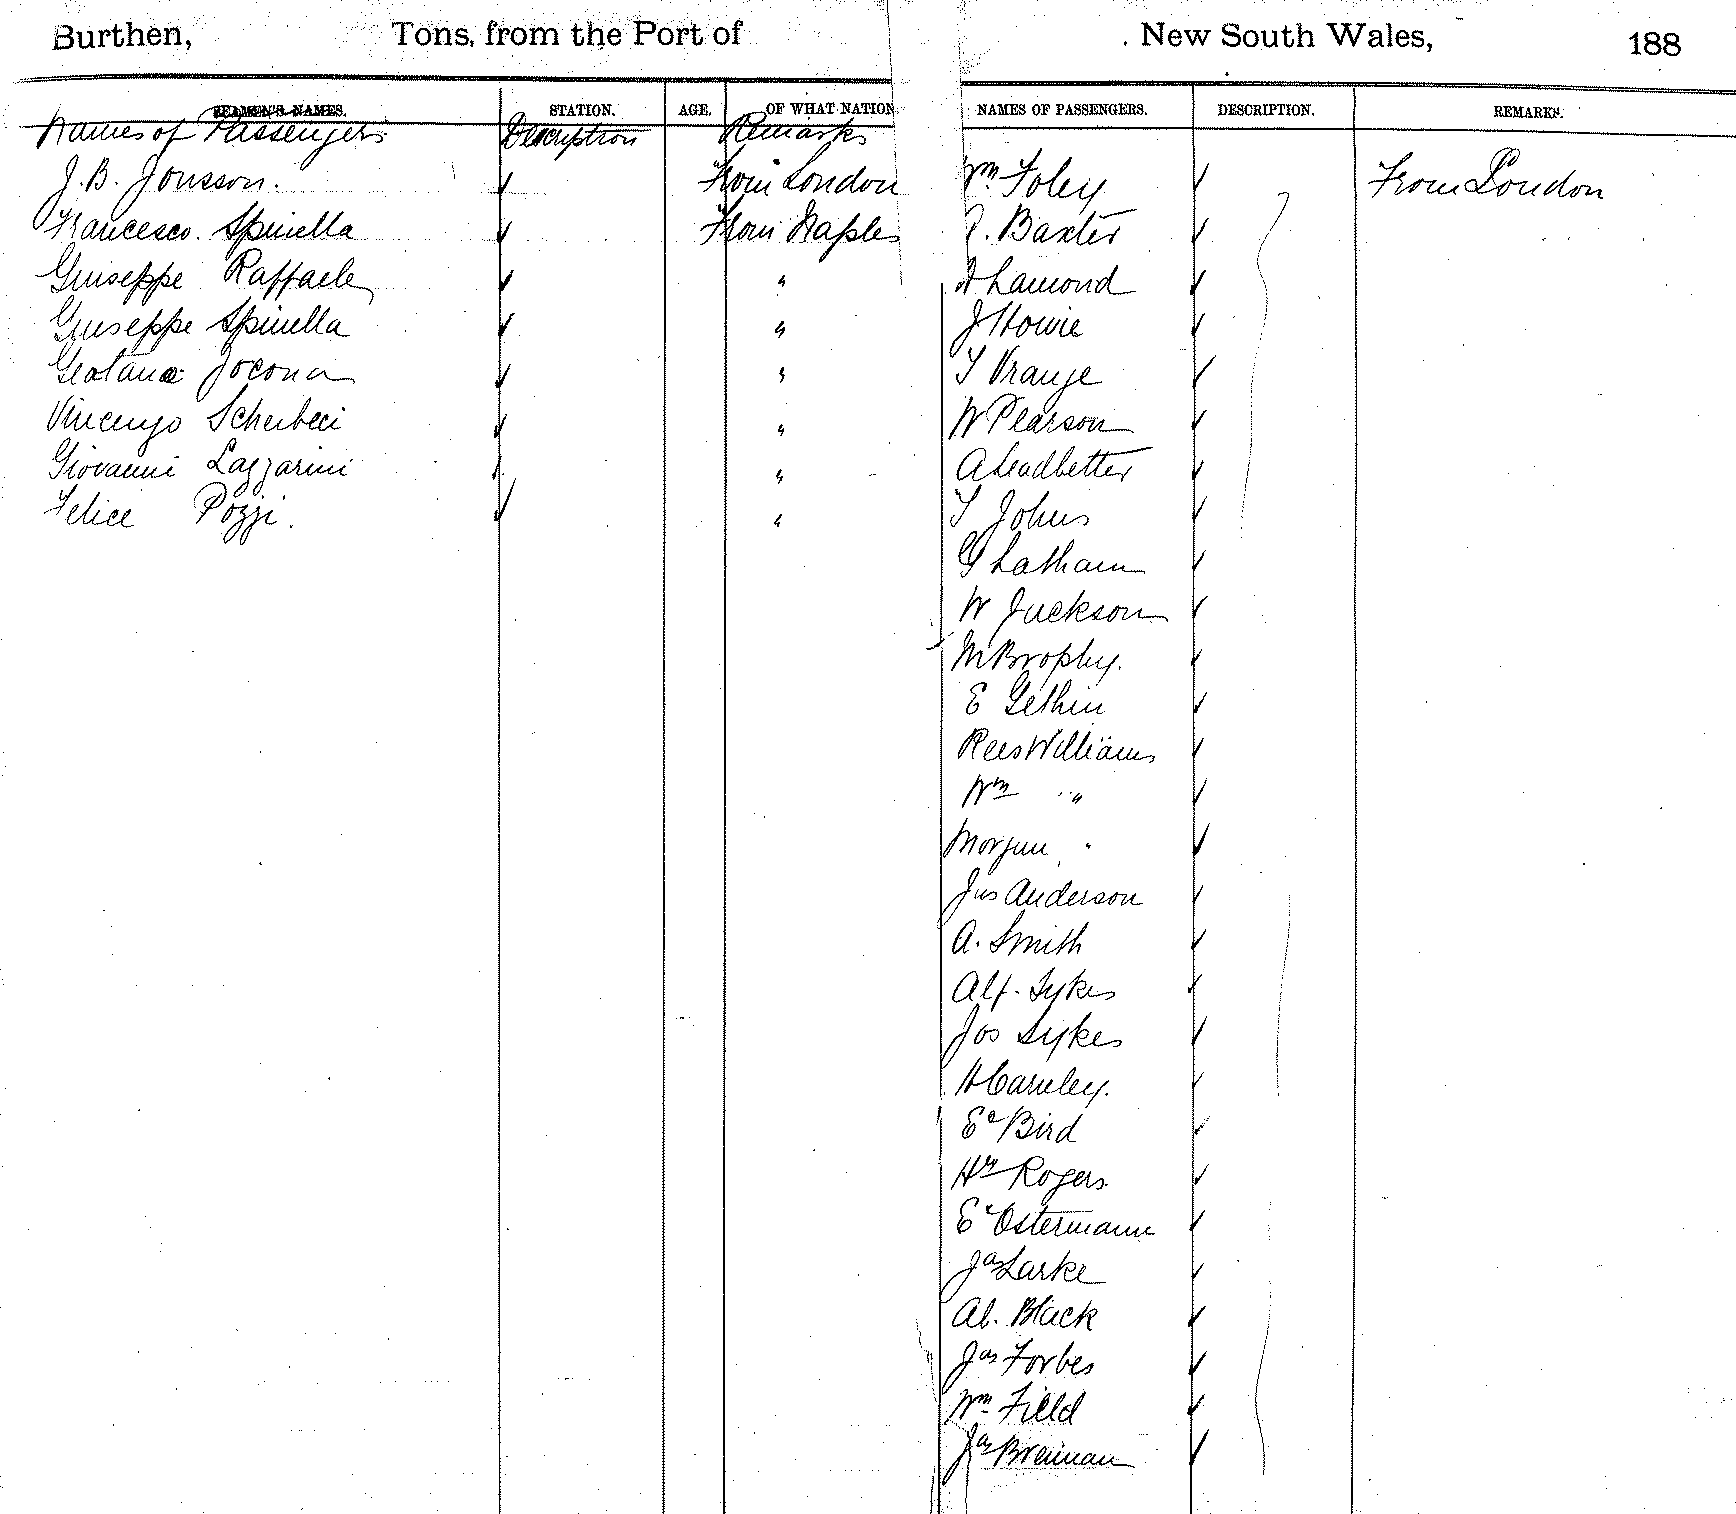 Burthen, Tons, from the Port of New South Wales, 188
SEAMEN'S NAMES. STATION. AGE. OF WHAT NATION
Names of Passengers Description Remarks
J. B. Jonsson. ✓ From London
Francesco. Spinella ✓ From Naples
Guiseppe Raffaele ✓ "
Guiseppe Spinella ✓ "
Geatano Jocona ✓ "
Vincenzo Scherbeci ✓ "
Giovanni Lazzarini ✓ "
Felice Pozzi. ✓ "
NAMES OF PASSENGERS. DESCRIPTION. REMARKS.
Wm Foley ✓ From London
Baxter ✓
A Lamond ✓
J Howie ✓
T Orange ✓
W Pearson ✓
A Leadbetter ✓
T Johns ✓
G Latham ✓
W Jackson ✓
M Brophy. ✓
E Gethin ✓
Rees Williams ✓
Wm " ✓
Morgan " ✓
Jas Anderson ✓
A. Smith ✓
Alf. Sykes ✓
Jos Sykes ✓
H Carnley. ✓
Ed Bird ✓
Hy Rogers ✓
Ed Ostermann ✓
Jas Larke ✓
Al. Black ✓
Jas Forbes ✓
Wm Field ✓
Jas Brennan ✓